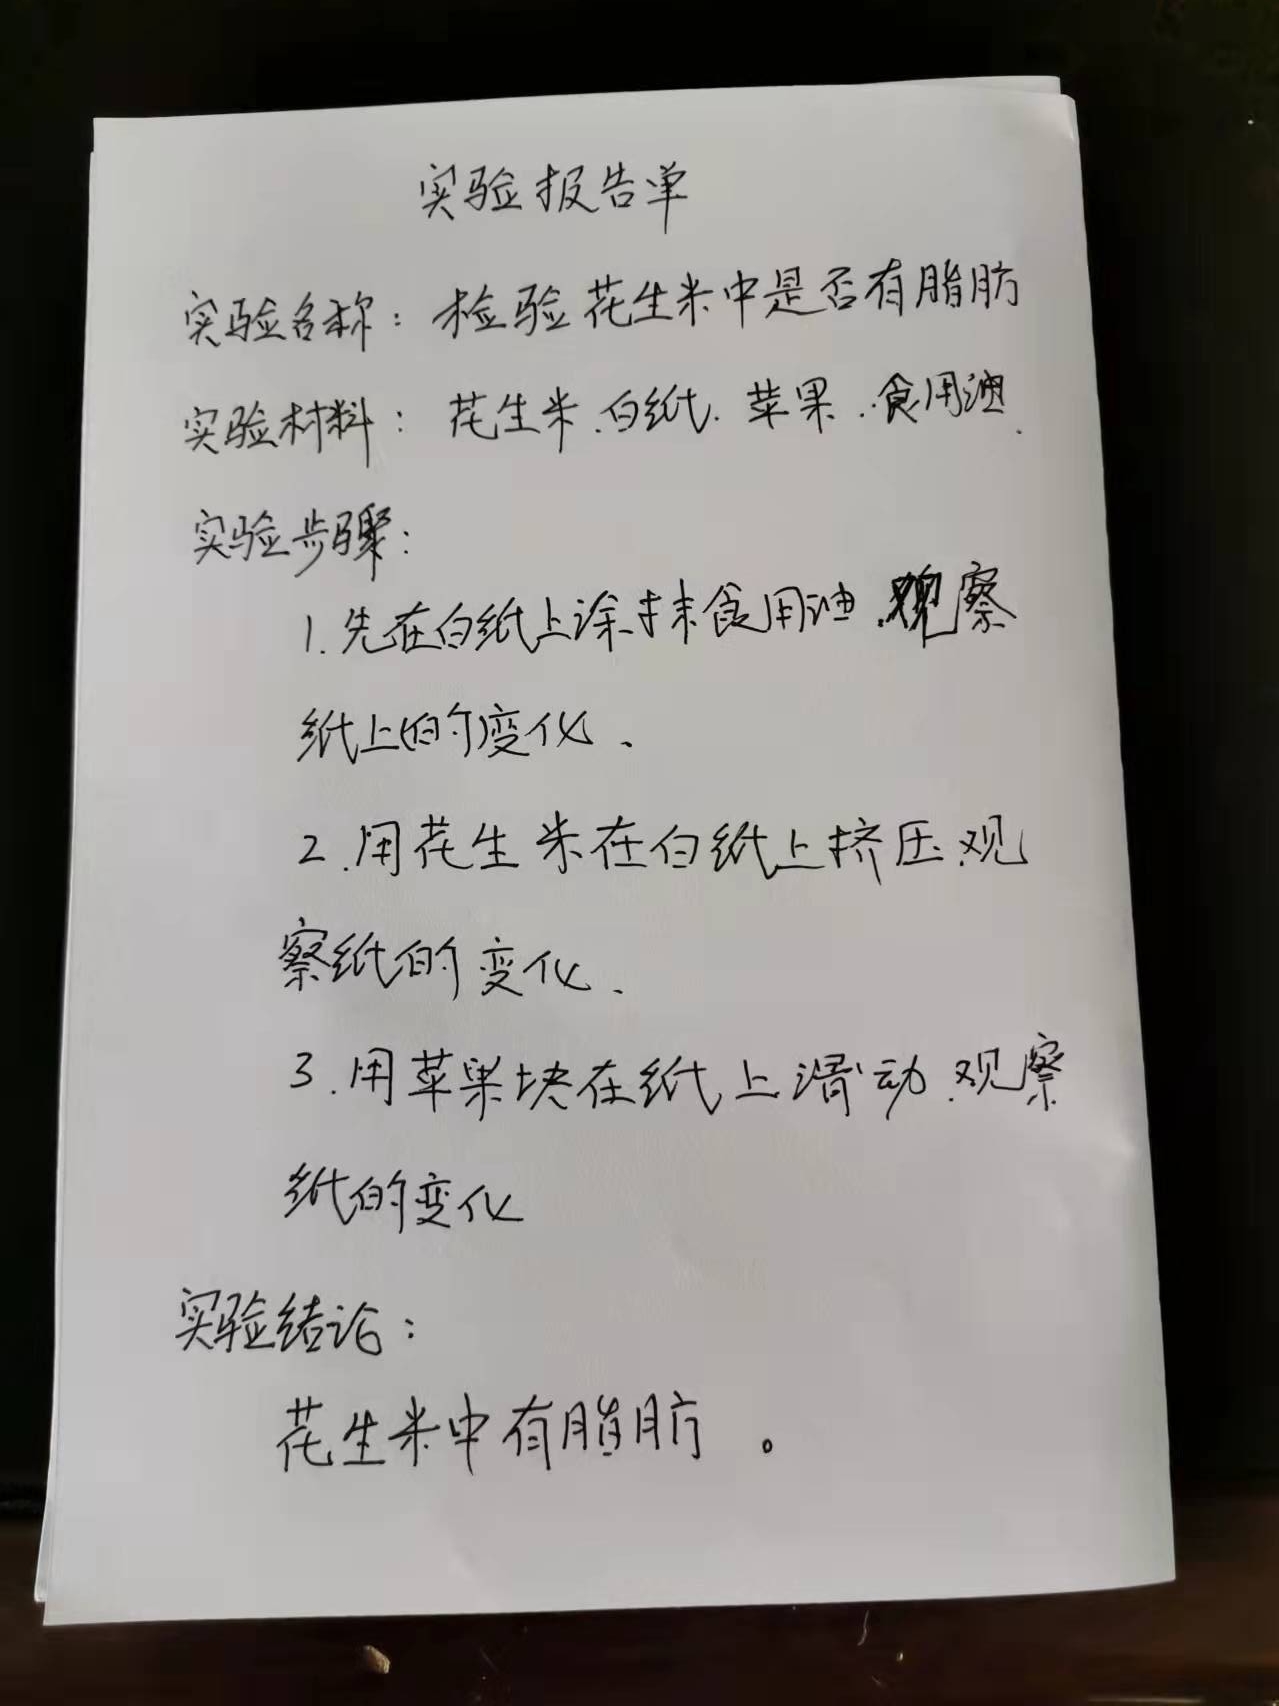 实验报告单
实验名称：检验花生米中是否有脂肪
实验材料：花生米、白纸、苹果、食用油.
实验步骤：
1.先在白纸上涂抹食用油、观察
纸上的变化、
2.用花生米在白纸上挤压、观
察纸的变化、
3.用苹果块在纸上滑动、观察
纸的变化
实验结论：
花生米中有脂肪。